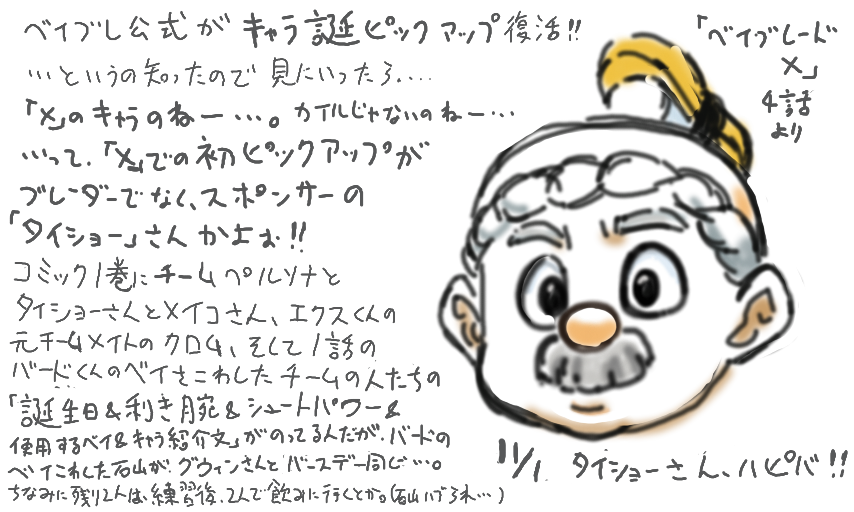 ベイブレ公式がキャラ誕ピックアップ復活!!
…というの知ったので見にいったら....
「X」のキャラのねー…。カイルじゃないのねー…
…って、「X」での初ピックアップが
ブレーダーでなく、スポンサーの
「タイショー」さんかよぉ!!
コミック1巻にチームペルソナと
タイショーさんとメイコさん、エクスくんの
元チームメイトのクロム、そして1話の
バードくんのベイをこわしたチームの人たちの
「誕生日&利き腕&シュートパワー&
使用するベイ&キャラ紹介文」がのってるんだが、バードの
ベイこわした石山が、グウィンさんとバースデー同じ…。
ちなみに残り2人は、練習後、2人で飲みに行くとか。(石山ハブられ…)
「ベイブレード
X」
4話
より
11/1 タイショーさん、ハピバ!!